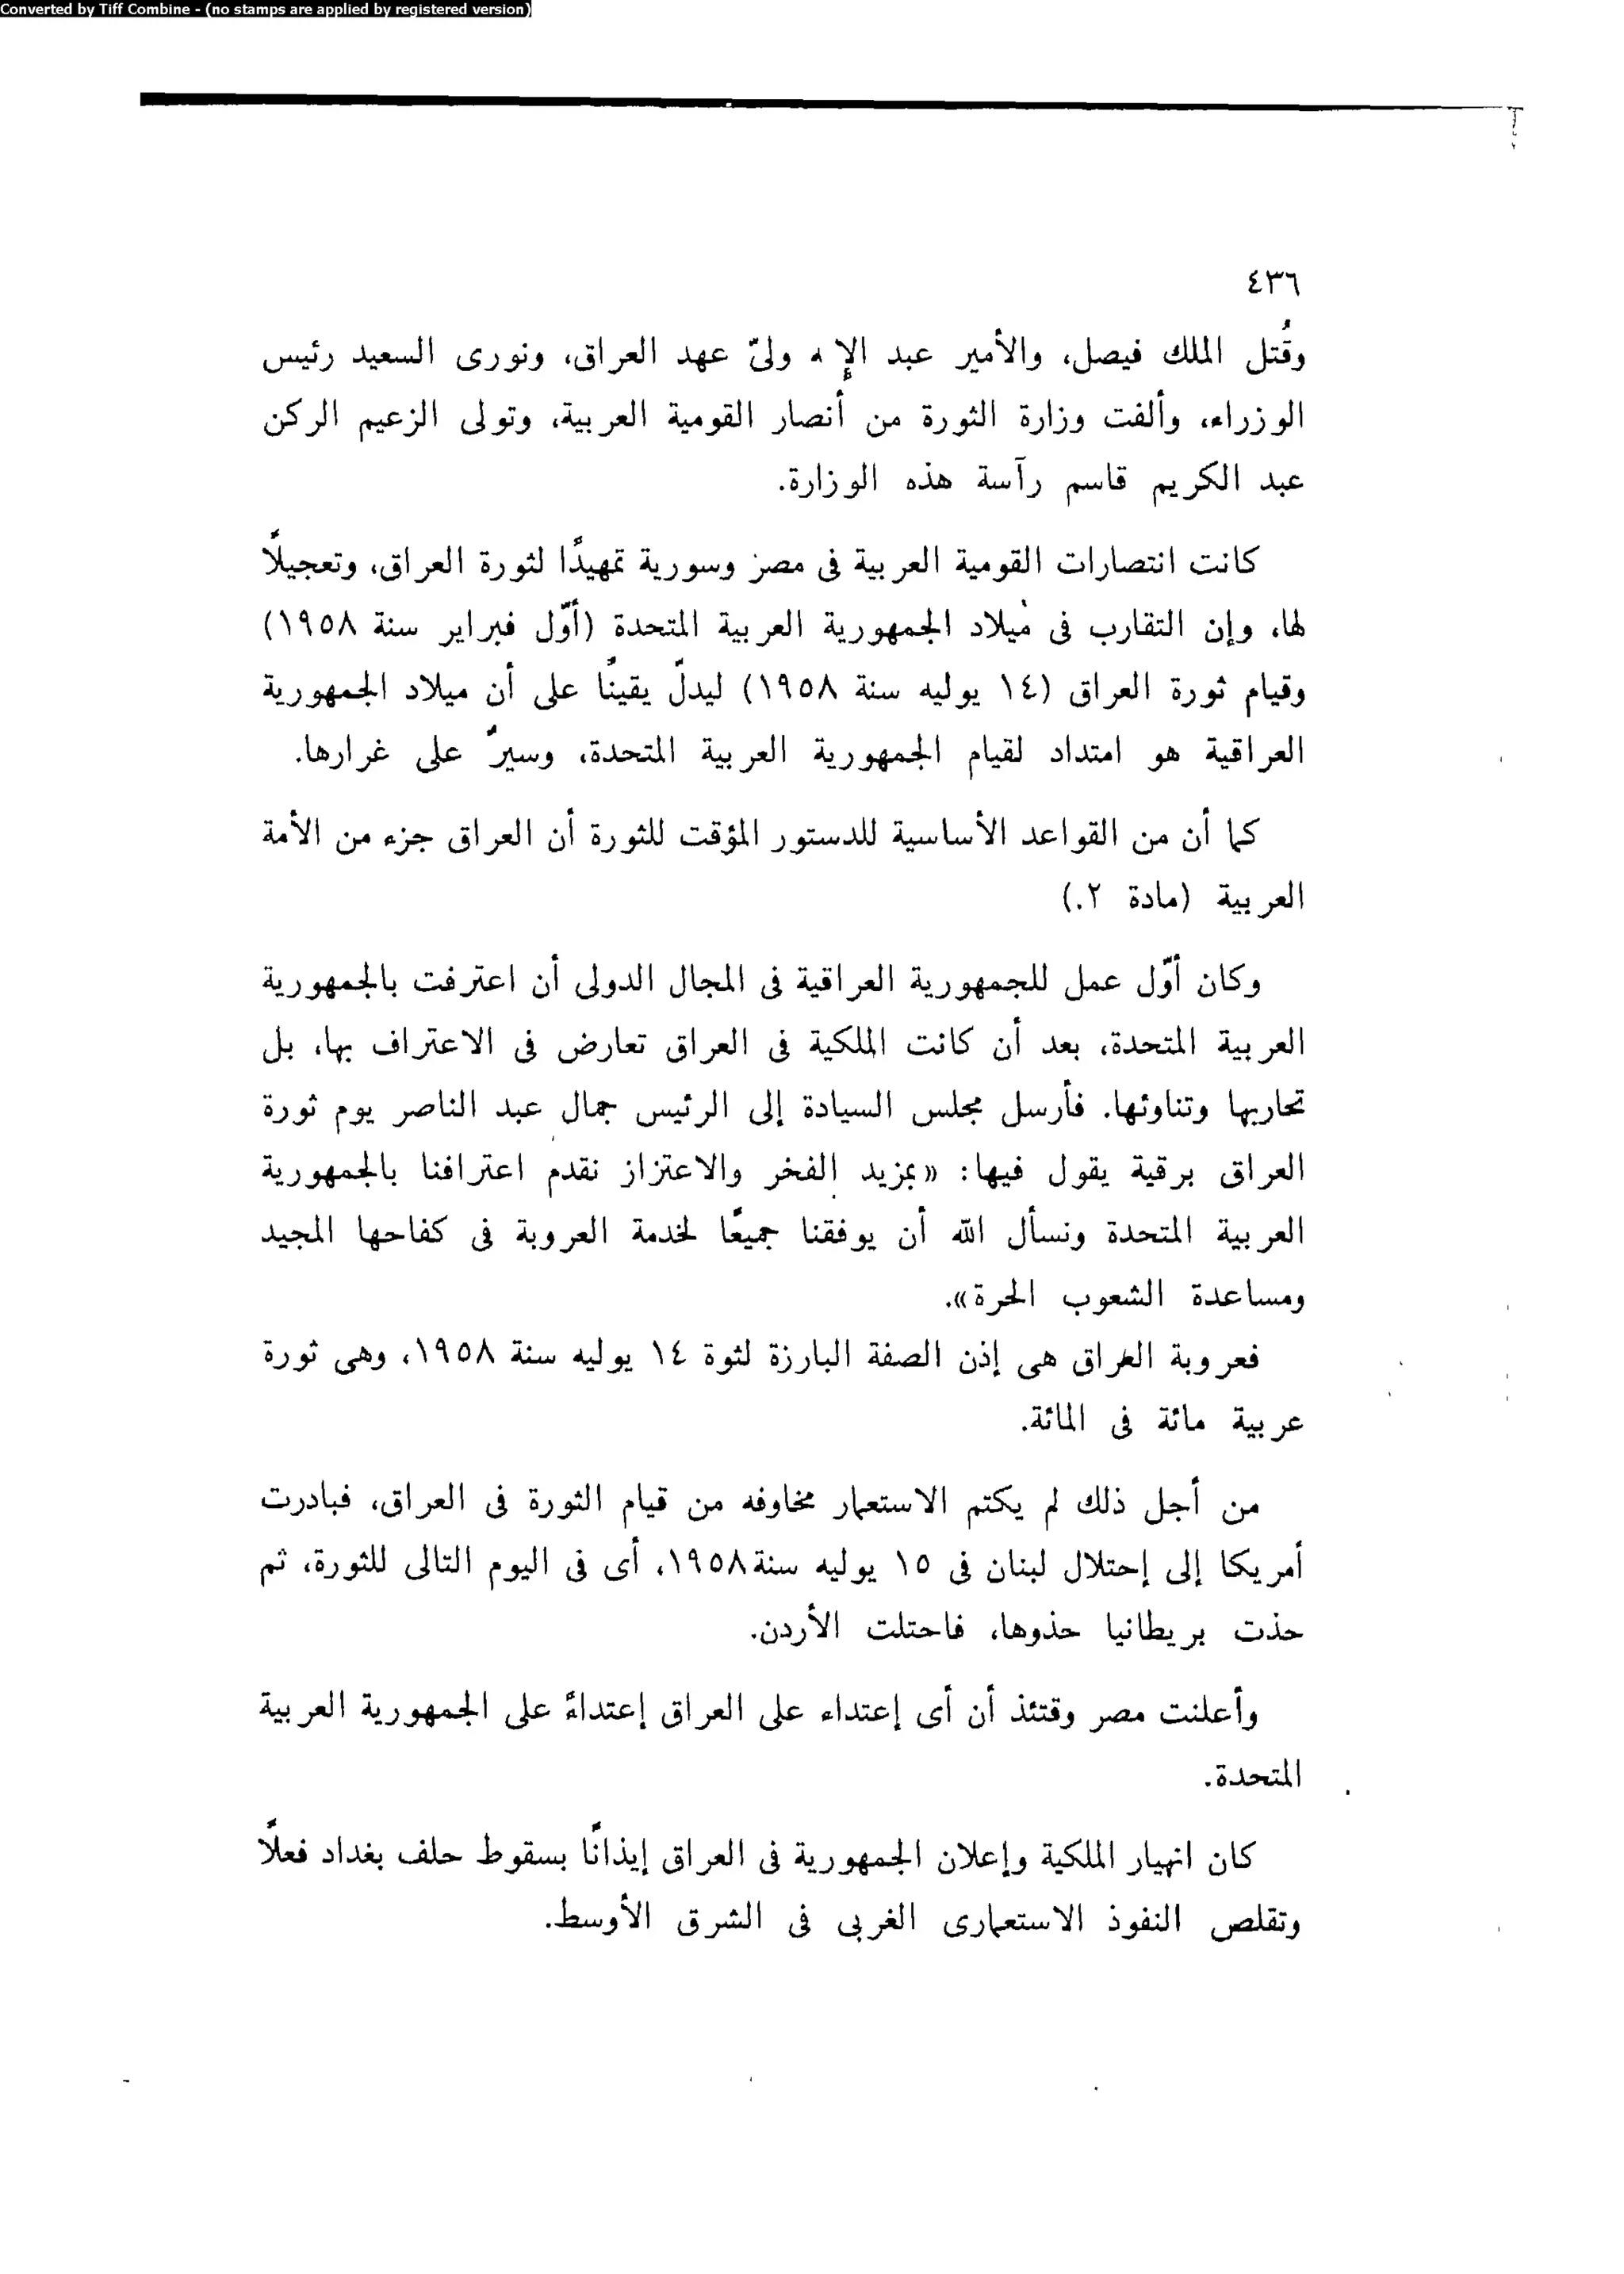 Converted by Tiff Combine - (no stamps are applied by registered version)
٤٣٦
وقُتل الملك فيصل، والأمير عبد الإله ولىّ عهد العراق، ونورى السعيد رئيس
الوزراء، وألفت وزارة الثورة من أنصار القومية العربية، وتولى الزعيم الركن
عبد الكريم قاسم رآسة هذه الوزارة.
كانت انتصارات القومية العربية فى مصر وسورية تمهيدًا لثورة العراق، وتعجيلاً
لها، وإن التقارب فى ميلاد الجمهورية العربية المتحدة (أوّل فبراير سنة ١٩٥٨)
وقيام ثورة العراق (١٤ يوليه سنة ١٩٥٨) ليدلّ يقينًا على أن ميلاد الجمهورية
العراقية هو امتداد لقيام الجمهورية العربية المتحدة، وسيرٌ على غرارها.
كما أن من القواعد الأساسية للدستور المؤقت للثورة أن العراق جزء من الأمة
العربية (مادة ٢.)
وكان أوّل عمل للجمهورية العراقية فى المجال الدولى أن اعترفت بالجمهورية
العربية المتحدة، بعد أن كانت الملكية فى العراق تعارض فى الاعتراف بها، بل
تحاربها وتناوئها. فأرسل مجلس السيادة إلى الرئيس جمال عبد الناصر يوم ثورة
العراق برقية يقول فيها: «بمزيد الفخر والاعتزاز نقدم اعترافنا بالجمهورية
العربية المتحدة ونسأل الله أن يوفقنا جميعًا لخدمة العروبة فى كفاحها المجيد
ومساعدة الشعوب الحرة».
فعروبة العراق هى إذن الصفة البارزة لثوة ١٤ يوليه سنة ١٩٥٨، وهى ثورة
عربية مائة فى المائة.
من أجل ذلك لم يكتم الاستعمار مخاوفه من قيام الثورة فى العراق، فبادرت
أمريكا إلى إحتلال لبنان فى ١٥ يوليه سنة ١٩٥٨، أى فى اليوم التالى للثورة، ثم
حذت بريطانيا حذوها، فاحتلت الأردن.
وأعلنت مصر وقتئذ أن أى إعتداء على العراق إعتداءً على الجمهورية العربية
المتحدة.
كان انهيار الملكية وإعلان الجمهورية فى العراق إيذانًا بسقوط حلف بغداد فعلاً
وتقلص النفوذ الاستعمارى الغربى فى الشرق الأوسط.